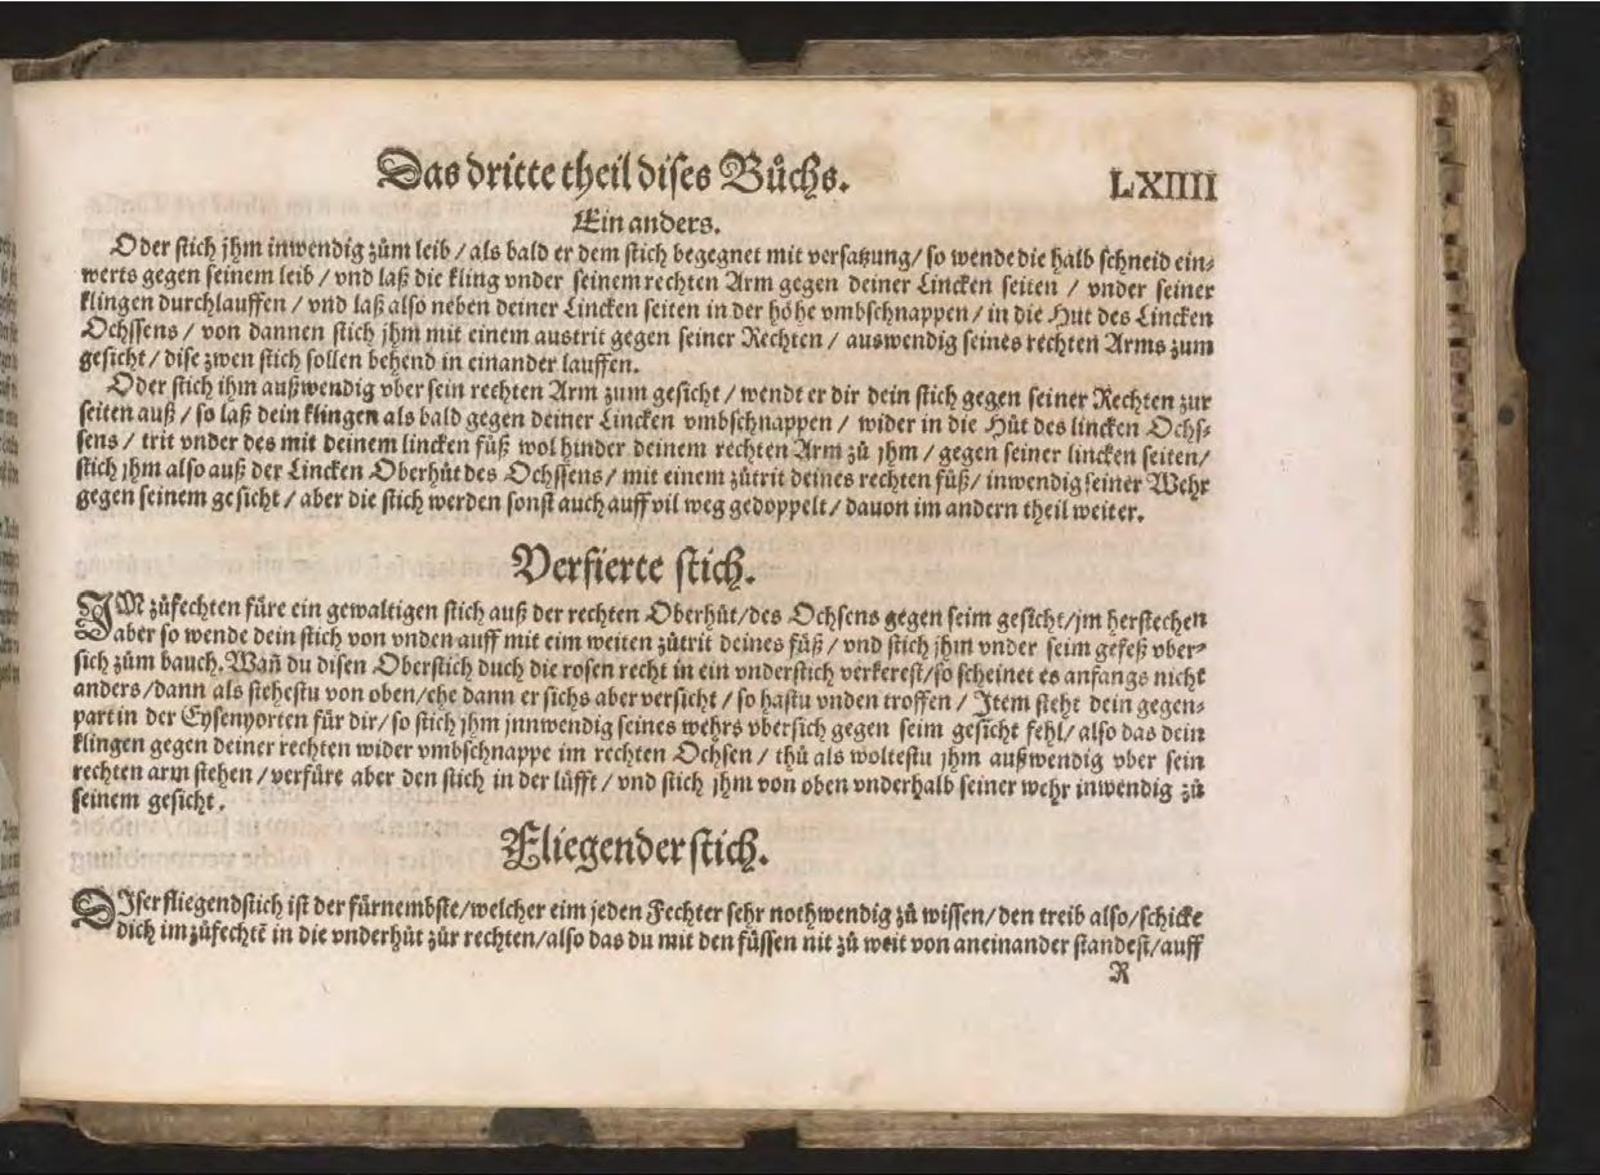 Das dritte theil dises Bůchs. LXIIII
Ein anders.
Oder stich jhm inwendig zům leib / als bald er dem stich begegnet mit versatzung / so wende die halb schneid ein⸗
werts gegen seinem leib / vnd laß die kling vnder seinem rechten Arm gegen deiner Lincken seiten / vnder seiner
klingen durchlauffen / vnd laß also neben deiner Lincken seiten in der höhe vmbschnappen / in die Hut des Lincken
Ochssens / von dannen stich jhm mit einem austrit gegen seiner Rechten / auswendig seines rechten Arms zum
gesicht / dise zwen stich sollen behend in einander lauffen.
Oder stich ihm außwendig vber sein rechten Arm zum gesicht / wendt er dir dein stich gegen seiner Rechten zur
seiten auß / so laß dein klingen als bald gegen deiner Lincken vmbschnappen / wider in die Hůt des lincken Ochs⸗
sens / trit vnder des mit deinem lincken fůß wol hinder deinem rechten Arm zů jhm / gegen seiner lincken seiten /
stich jhm also auß der Lincken Oberhůt des Ochssens / mit einem zůtrit deines rechten fůß / inwendig seiner Wehr
gegen seinem gesicht / aber die stich werden sonst auch auff vil weg gedoppelt / dauon im andern theil weiter.
Verfierte stich.
IM zůfechten füre ein gewaltigen stich auß der rechten Oberhůt / des Ochsens gegen seim gesicht / jm herstechen
aber so wende dein stich von vnden auff mit eim weiten zůtrit deines fůß / vnd stich jhm vnder seim gefeß vber⸗
sich zům bauch. Wañ du disen Oberstich duch die rosen recht in ein vnderstich verkerest / so scheinet es anfangs nicht
anders / dann als stehestu von oben / ehe dann er sichs aber versicht / so hastu vnden troffen / Item steht dein gegen⸗
part in der Eysenporten für dir / so stich jhm jnnwendig seines wehrs vbersich gegen seim gesicht fehl / also das dein
klingen gegen deiner rechten wider vmbschnappe im rechten Ochsen / thů als woltestu jhm außwendig vber sein
rechten arm stehen / verfüre aber den stich in der lüfft / vnd stich jhm von oben vnderhalb seiner wehr inwendig zů
seinem gesicht.
Fliegender stich.
DIser fliegendstich ist der fürnembste / welcher eim jeden Fechter sehr nothwendig zů wissen / den treib also / schicke
dich im zůfechtē in die vnderhůt zůr rechten / also das du mit den füssen nit zů weit von aneinander standest / auff
R